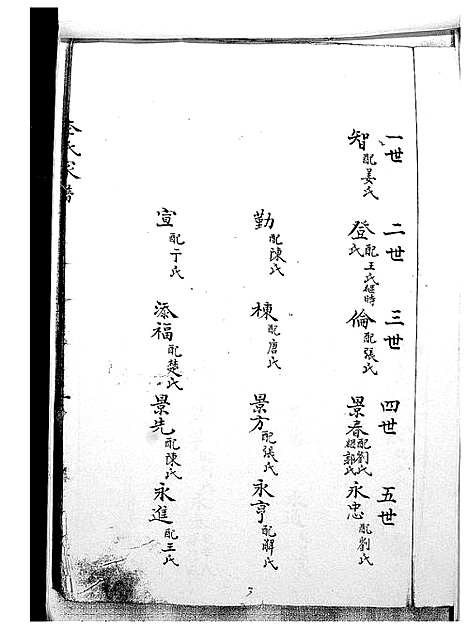 一世 二世 三世 四世 五世
智 配姜氏 登 配王氏繼時氏 倫 配張氏 景春 配劉氏繼郭氏 永忠 配劉氏
勤 配陳氏 棟 配唐氏 景方 配張氏 永亨 配解氏
宣 配于氏 添福 配楚氏 景先 配陳氏 永進 配王氏
氏家譜
3